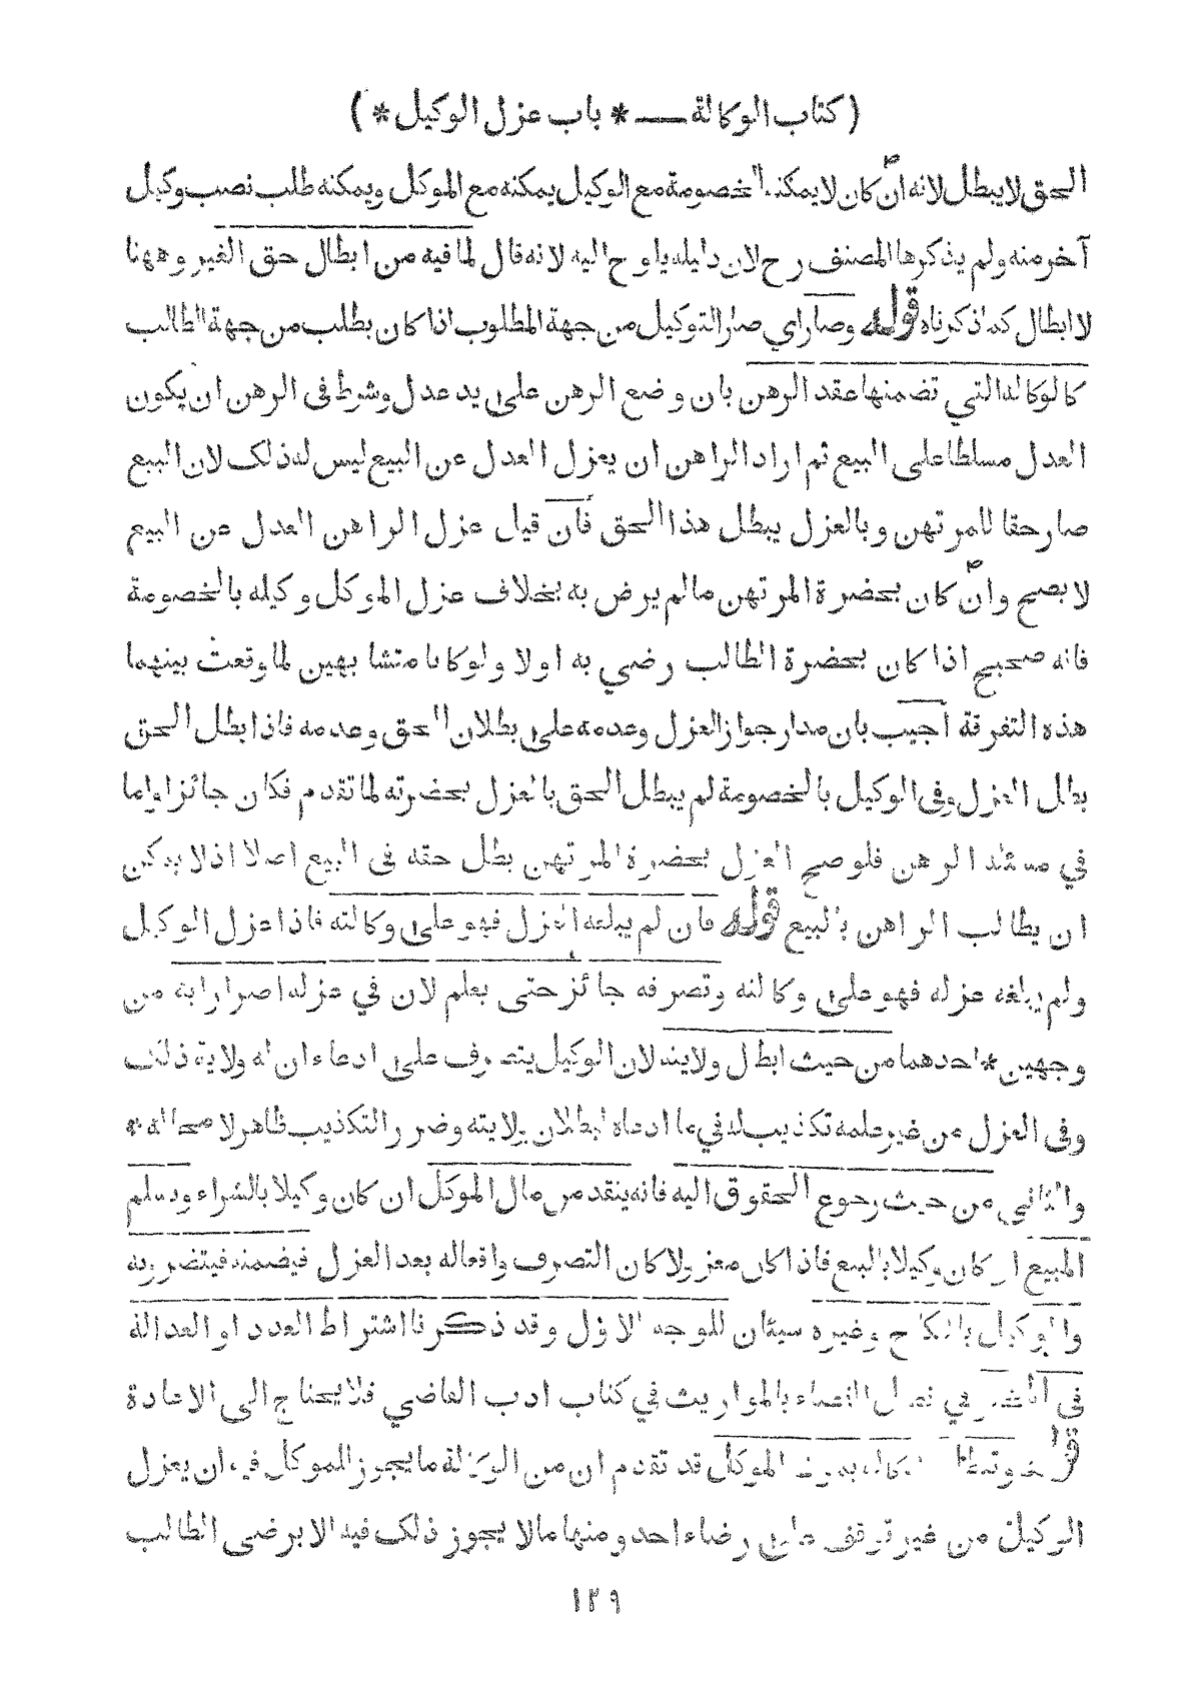 (كتاب الوكالة — * باب عزل الوكيل *)
الحق لا يبطل لانه ان كان لا يمكنه الخصومة مع الوكيل يمكنه مع الموكل ويمكنه طلب نصب وكيل
آخر منه ولم يذكرها المصنف رح لان دليله يلوح اليه لانه قال لما فيه من ابطال حق الغير وههنا
لا ابطال كما ذكرناه قوله وصار اي صار التوكيل من جهة المطلوب اذا كان بطلب من جهة الطالب
كالوكالة التي تضمنها عقد الرهن بان وضع الرهن على يد عدل وشرط فى الرهن ان يكون
العدل مسلطا على البيع ثم اراد الراهن ان يعزل العدل عن البيع ليس له ذلك لان البيع
صار حقا للمرتهن وبالعزل يبطل هذا الحق فان قيل عزل الراهن العدل عن البيع
لا يصح وان كان بحضرة المرتهن مالم يرض به بخلاف عزل الموكل وكيله بالخصومة
فانه صحيح اذا كان بحضرة الطالب رضي به اولا ولو كانا متشابهين لما وقعت بينهما
هذه التفرقة اجيب بان مدار جواز العزل وعدمه على بطلان الحق وعدمه فاذا بطل الحق
بطل العزل وفى الوكيل بالخصومة لم يبطل الحق بالعزل بحضرته لما تقدم فكان جائزا واما
في مسئلة الرهن فلو صح العزل بحضرة المرتهن بطل حقه فى البيع اصلا اذ لا يمكن
ان يطالب الراهن بالبيع قوله فان لم يبلغه العزل فهو على وكالته فاذا عزل الوكيل
ولم يبلغه عزله فهو على وكالته وتصرفه جائز حتى يعلم لان في عزله اضرارا به من
وجهين * احدهما من حيث ابطال ولايته لان الوكيل يتصرف على ادعاء ان له ولاية ذلك
وفى العزل من غير علمه تكذيب له في ما ادعاه لبطلان ولايته وضرر التكذيب ظاهر لا محالة *
والثاني من حيث رجوع الحقوق اليه فانه ينقد من مال الموكل ان كان وكيلا بالشراء ويسلم
المبيع ان كان وكيلا بالبيع فاذا كان معزولا كان التصرف واقعا له بعد العزل فيضمنه فيتضرر به
والوكيل بالنكاح وغيره سيئان للوجه الاول وقد ذكرنا اشتراط العدد او العدالة
فى المخبر في فصل القضاء بالمواريث في كتاب ادب القاضي فلا يحتاج الى الاعادة
قوله وتبطل الوكالة بموت الموكل قد تقدم ان من الوكالة ما يجوز للموكل فيه ان يعزل
الوكيل من غير توقف على رضاء احد ومنها مالا يجوز ذلك فيه الا برضى الطالب
١٢٩